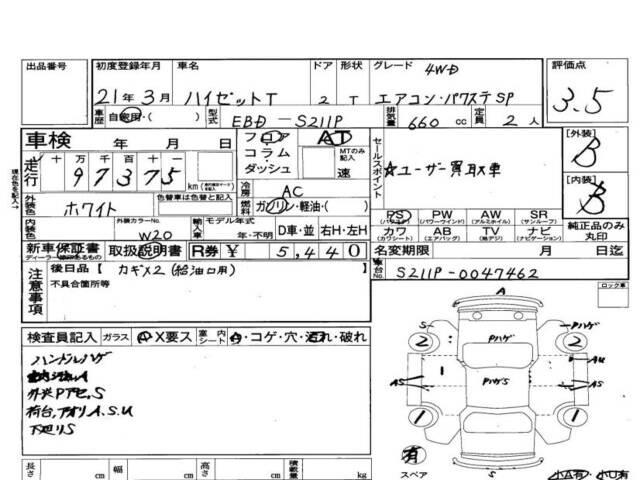 出品番号 初度登録年月 車名 ドア 形状 グレード 4WD 評価点
21年 3月 ハイゼットT 2 T エアコン・パワステSP 3.5
車歴 自家用・( ) 型式 EBD-S211P 排気量 660 cc 定員 2 人
車検 年 月 日
フロア コラム ダッシュ AT MTのみ記入 速
セールスポイント ☆ユーザー買取車
[外装] B
[内装] B
現在色を記入→
走行 十 万 千 百 十 一 97375 km
冷房 AC
外装色 ホワイト 色替車は色替と記入 燃料 ガソリン・軽油・( )
PS (パワステ) PW (パワーウィンド) AW (アルミホイル) SR (サンルーフ)
カワ (カワシート) AB (エアバッグ) TV (地デジ) ナビ (ナビゲーション)
純正品のみ丸印
内装色 外装カラーNo. W20 輸入車 モデル年式 年・不明 D車・並 右H・左H
新車保証書 ディーラー 取扱説明書 R券 ¥ 5,440
名変期限 月 日迄
注意事項 後日品 [ カギ×2 (給油口用)
不具合箇所等
車台No. S211P-0047462
ロック車
検査員記入 ガラス A・X要ス 室内 シート A・コゲ・穴・汚れ・破れ
ハンドルハゲ
外装PアセS
荷台,アオリA.S.U
下廻りS
A
S Pハゲ
2 Pハゲ 2
1 AU
AS PハゲS AS
1 1
有
スペア S 小A有・小U有
長さ cm 幅 cm 高さ cm 積載量 kg